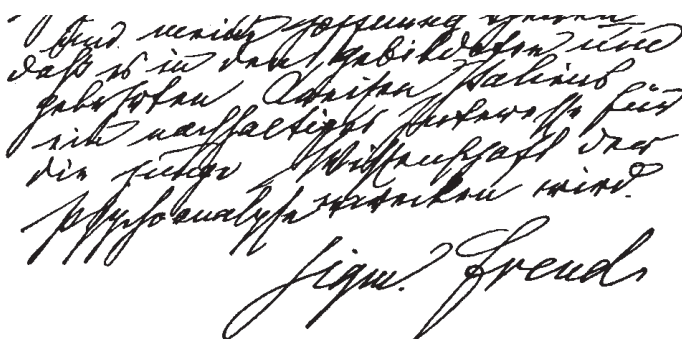 und meine Hoffnung
daß es in den gebildeten und
gelehrten Kreisen Italiens
ein nachhaltiges Interesse für
die junge Wissenschaft der
Psychoanalyse erwecken wird.
Sigm. Freud